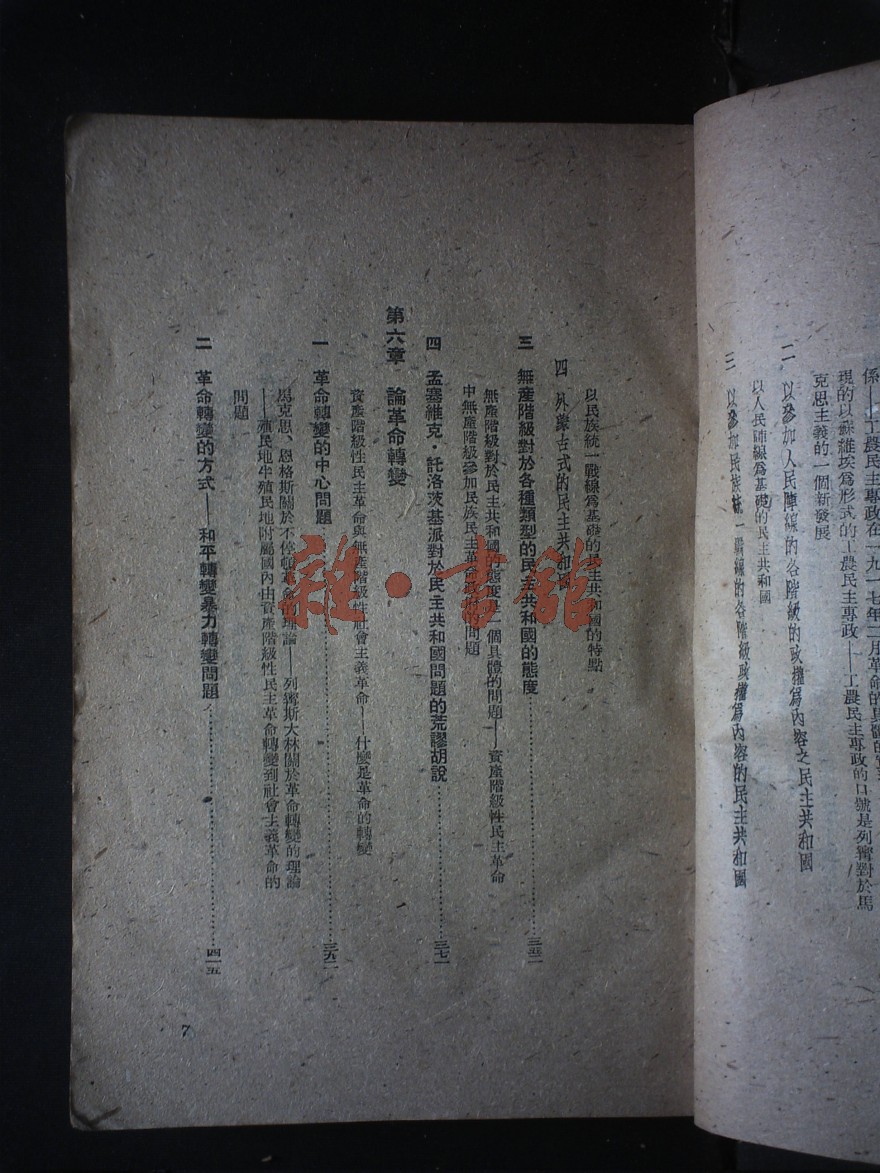 係——工農民主專政在一九一七年二月革命的具體的實
現的以蘇維埃爲形式的工農民主專政——工農民主專政的口號是列甯對於馬
克思主義的一個新發展
二 以參加人民陣線的各階級的政權爲內容之民主共和國
以人民陣線爲基礎的民主共和國
三 以參加民族統一戰線的各階級政權爲內容的民主共和國
以民族統一戰線爲基礎的民主共和國的特點
四 外蒙古式的民主共和國
三 無產階級對於各種類型的民主共和國的態度……三五二
無產階級對於民主共和國的態度是一個具體的問題——資產階級性民主革命
中無產階級參加民族民主革命政府的問題
四 孟塞維克·託洛茨基派對於民主共和國問題的荒謬胡說……三七一
第六章 論革命轉變
一 革命轉變的中心問題……三九二
資產階級性民主革命與無產階級性社會主義革命——什麼是革命的轉變
馬克思、恩格斯關於不停頓革命的理論——列甯斯大林關於革命轉變的理論
——殖民地半殖民地附屬國內由資產階級性民主革命轉變到社會主義革命的
問題
二 革命轉變的方式——和平轉變暴力轉變問題……四一五
7
雜·書館